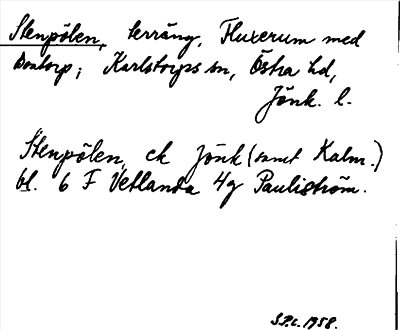 Stenpölen, terräng, Fluxerum med
Boatorp; Karlstorps sn, Östra hd,
Jönk. l.
Stenpölen, ek Jönk (samt Kalm.)
bl. 6 F Vetlanda 4g Pauliström.
S.P.L. 1958.